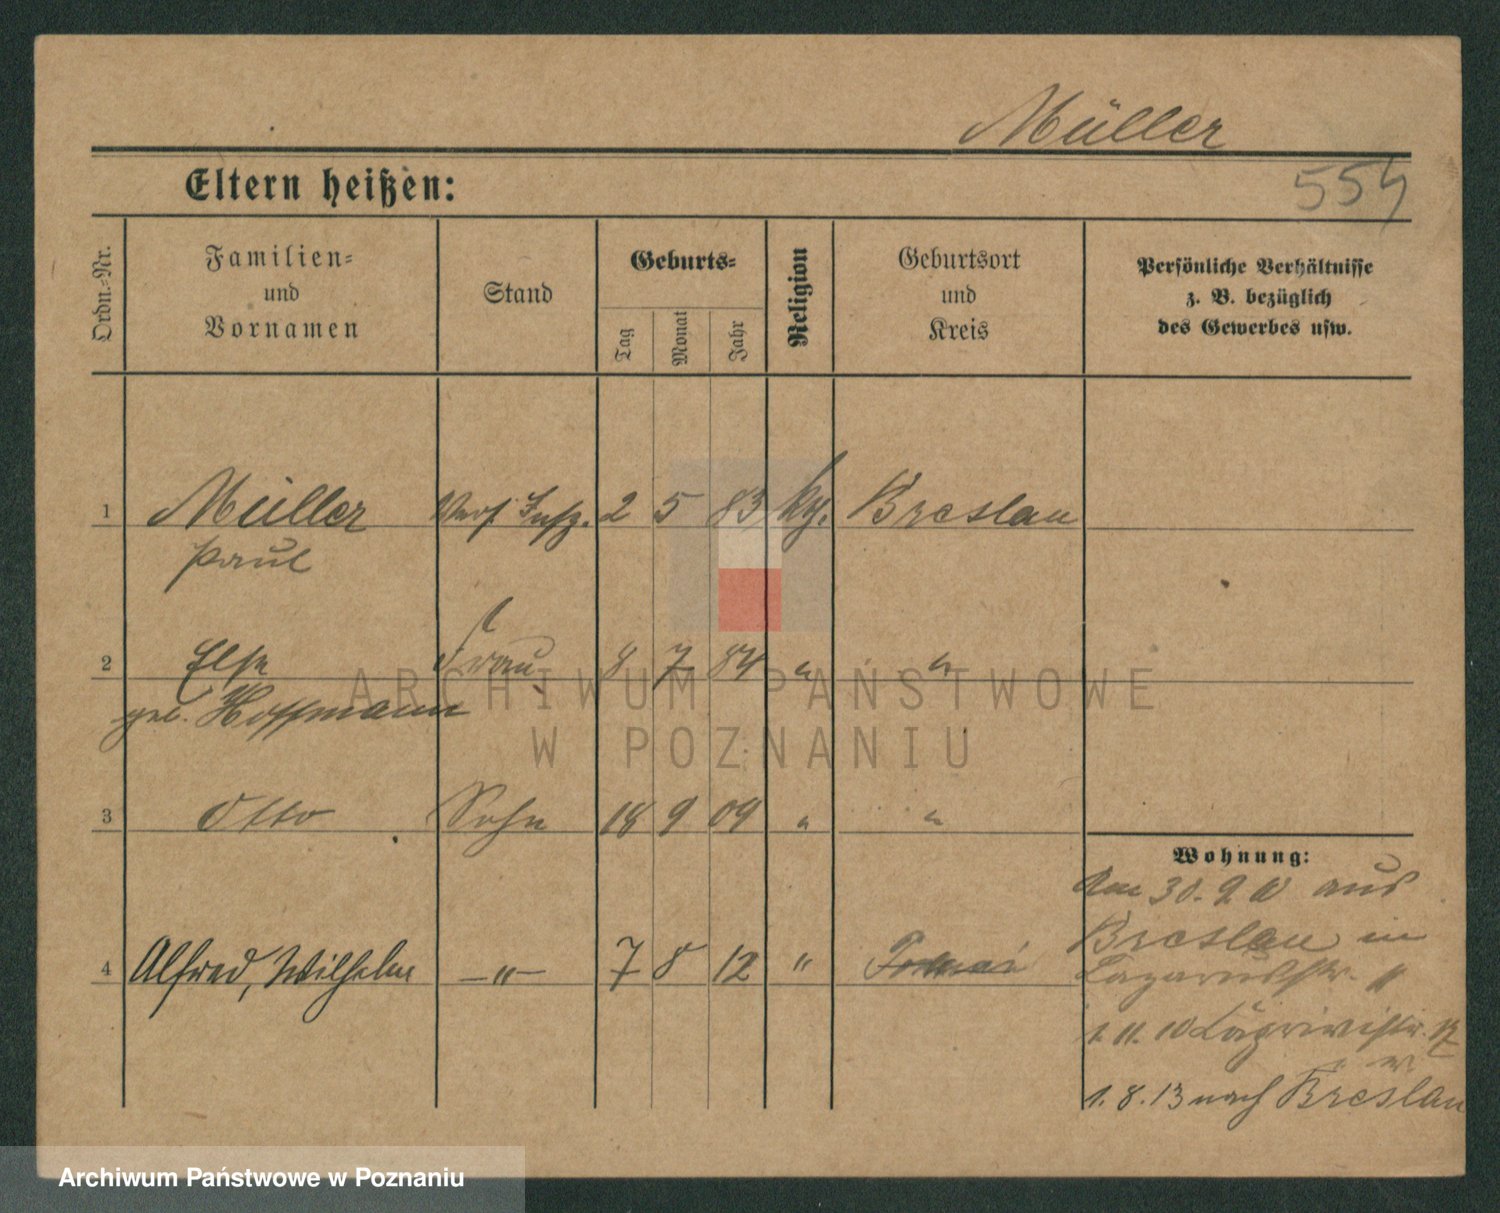 Müller
Eltern heißen:
554
Ordn.-Nr.
Familien-
und
Vornamen
Stand
Geburts-
Tag
Monat
Jahr
Religion
Geburtsort
und
Kreis
Persönliche Verhältnisse
z. B. bezüglich
des Gewerbes usw.
1 Müller Vers. Insp. 2 5 83 Breslau
Paul
2 Else Frau 8 7 84 " "
geb. Hoffmann
3 Otto Sohn 18 9 09 " "
Wohnung:
Am 30. 9. 10 aus
Breslau in
4 Alfred, Wilhelm —"— 7 8 12 "
Lazarusstr.
1. 11. 10
1. 8. 13 nach Breslau
ARCHIWUM PAŃSTWOWE
W POZNANIU
Archiwum Państwowe w Poznaniu